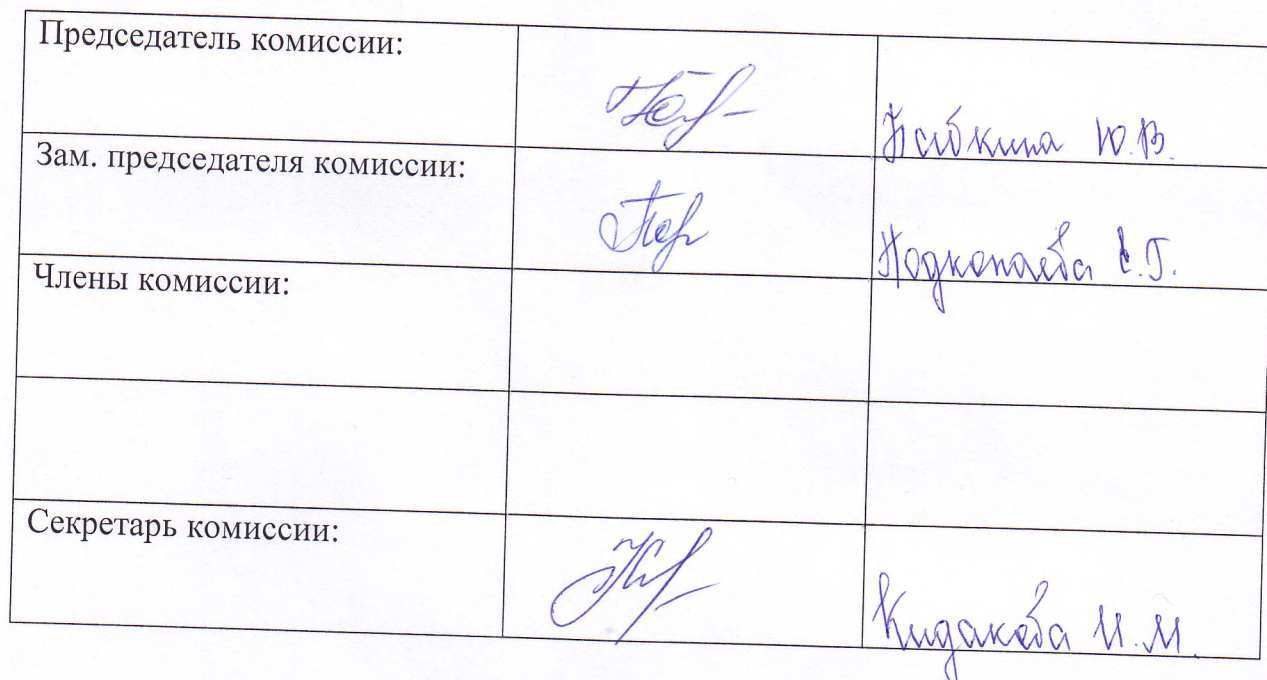 Председатель комиссии:
Ю.В.
Зам. председателя комиссии:
Подкопаева Е.Г.
Члены комиссии:
Секретарь комиссии:
Кидакоева И.М.